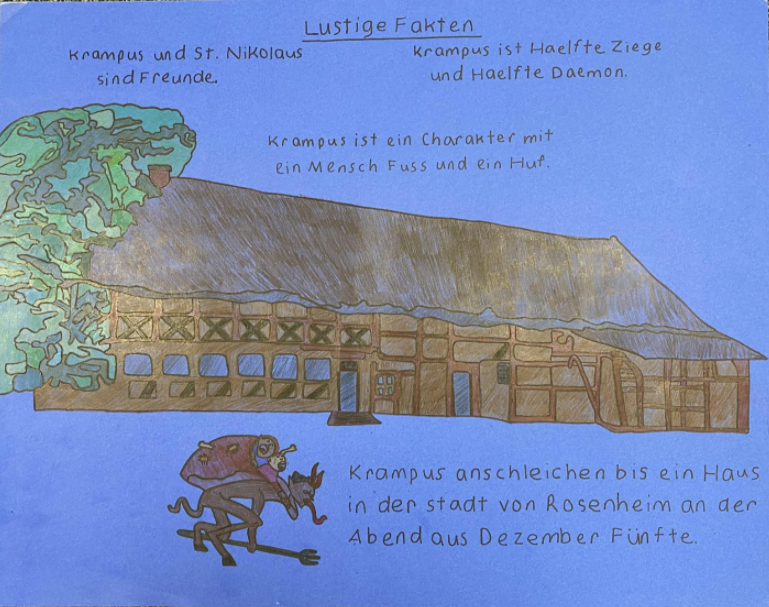 Lustige Fakten
Krampus und St. Nikolaus
sind Freunde.
Krampus ist Haelfte Ziege
und Haelfte Daemon.
Krampus ist ein Charakter mit
ein Mensch Fuss und ein Huf.
Krampus anschleichen bis ein Haus
in der stadt von Rosenheim an der
Abend aus Dezember Fünfte.